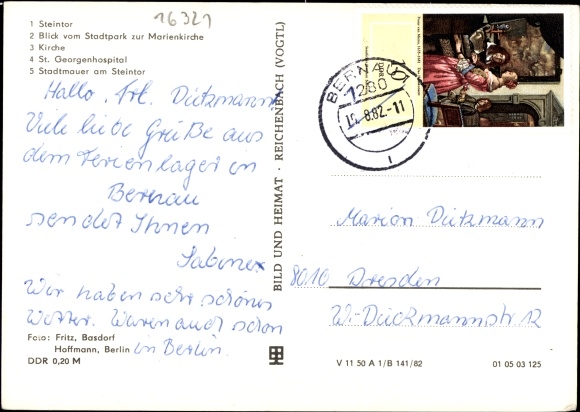 16321
1 Steintor
2 Blick vom Stadtpark zur Marienkirche
3 Kirche
4 St. Georgenhospital
5 Stadtmauer am Steintor
Hallo, Frl. Dützmann
Viele liebe Grüße aus
dem Ferienlager in
Bernau
sendet Ihnen
Sabine
Wir haben sehr schönes
Wetter. Waren auch schon
in Berlin.
Foto: Fritz, Basdorf
Hoffmann, Berlin
DDR 0,20 M
BILD UND HEIMAT · REICHENBACH (VOGTL)
BERNAU
1280
-8.82-11
Marion Dützmann
8010 Dresden
W.-Dieckmannstr. 12
V 11 50 A 1/B 141/82
01 05 03 125